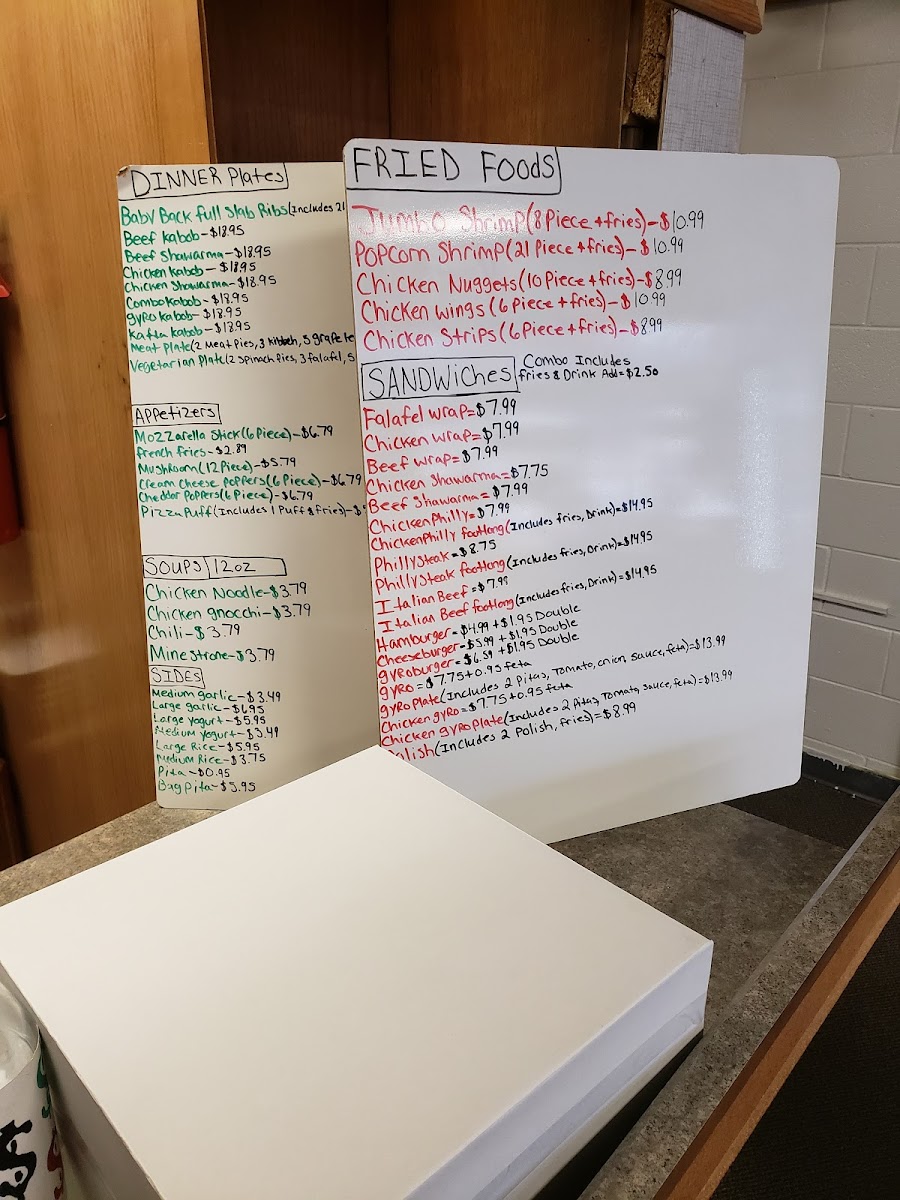 DINNER Plates
Baby Back Full Slab Ribs(Includes 21
Beef kabob-$18.95
Beef Shawarma-$18.95
Chicken kabob-$18.95
Chicken Shawarma-$18.95
Combo kabob-$18.95
gyro kabob-$18.95
Kafta kabob-$18.95
Meat Plate(2 Meat Pies, 3 Kibbeh, 5 grape le
Vegetarian Plate(2 Spinach Pies, 3 falafel, 5
APPetizers
Mozzarella Stick(6 Piece)-$6.79
french fries-$2.89
Mushroom(12 Piece)-$5.79
Cream Cheese Poppers(6 Piece)-$6.79
Cheddar Poppers(6 Piece)-$6.79
Pizza Puff(Includes 1 Puff & fries)-$
SOUPS 12oz
Chicken Noodle-$3.79
Chicken gnocchi-$3.79
Chili-$3.79
Minestrone-$3.79
SIDES
Medium garlic-$3.49
Large garlic-$6.95
Large yogurt-$5.95
Medium yogurt-$3.49
Large Rice-$5.95
Medium Rice-$3.75
Pita-$0.95
Bag Pita-$5.95
FRIED FOODS
Jumbo Shrimp(8 Piece +fries)-$10.99
POPCorn Shrimp(21 Piece +fries)-$10.99
Chicken Nuggets(10 Piece +fries)-$8.99
Chicken wings(6 Piece +fries)-$10.99
Chicken Strips(6 Piece +fries)-$8.99
SANDWiches
Combo Includes
fries & Drink Add=$2.50
Falafel wrap=$7.99
Chicken wrap=$7.99
Beef wrap=$7.99
Chicken Shawarma=$7.75
Beef Shawarma=$7.99
Chicken Philly=$7.99
Chicken Philly footlong(Includes fries, Drink)=$14.95
Philly Steak=$8.75
Philly Steak footlong(Includes fries, Drink)=$14.95
Italian Beef=$7.99
Italian Beef footlong(Includes fries, Drink)=$14.95
Hamburger=$4.99+$1.95 Double
Cheeseburger-$5.99+$1.95 Double
gyroburger=$6.59+$1.95 Double
gyro=$7.75+0.95 feta
gyro Plate(Includes 2 Pitas, Tomato, onion, Sauce, feta)=$13.99
Chicken gyro=$7.75+0.95 feta
Chicken gyro Plate(Includes 2 Pitas, Tomato, Sauce, feta)=$13.99
Polish(Includes 2 Polish, fries)=$8.99